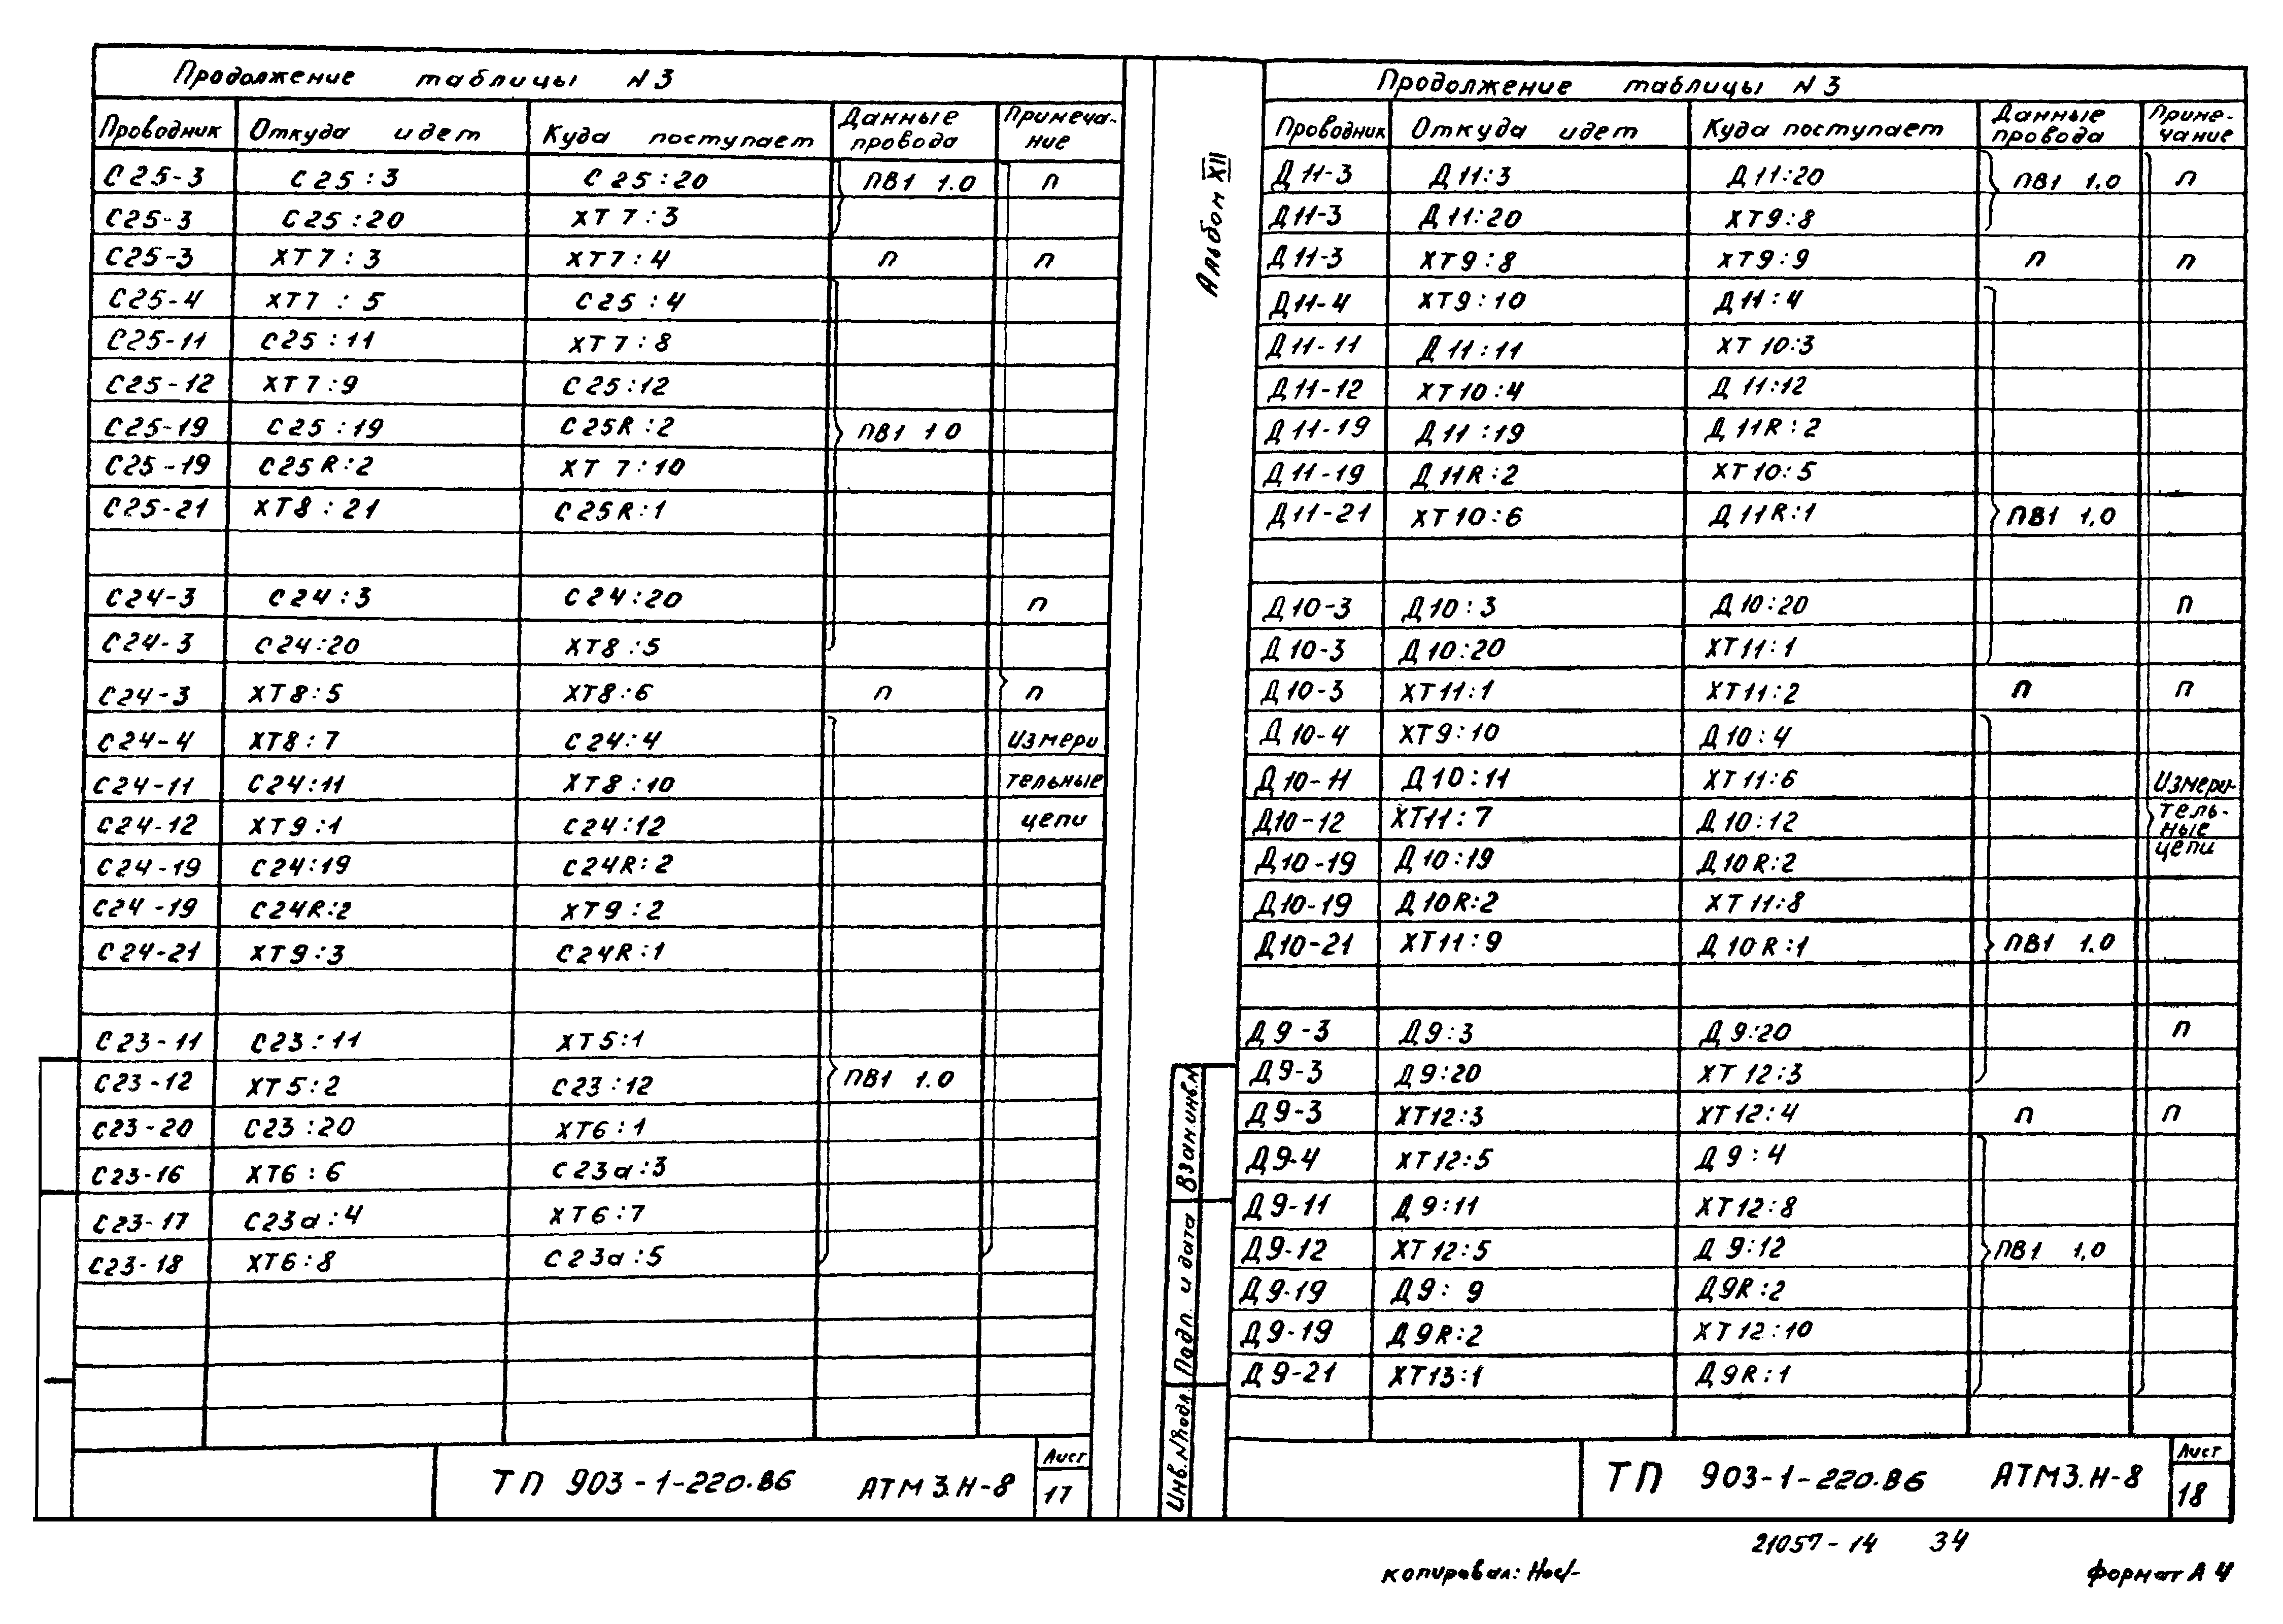 Продолжение таблицы N 3
Проводник Откуда идет Куда поступает Данные провода Примеча-ние
С25-3 С25:3 С25:20 ПВ1 1.0 п
С25-3 С25:20 ХТ7:3
С25-3 ХТ7:3 ХТ7:4 п п
С25-4 ХТ7:5 С25:4
С25-11 С25:11 ХТ7:8
С25-12 ХТ7:9 С25:12
С25-19 С25:19 С25R:2 ПВ1 1 0
С25-19 С25R:2 ХТ7:10
С25-21 ХТ8:21 С25R:1
С24-3 С24:3 С24:20 п
С24-3 С24:20 ХТ8:5
С24-3 ХТ8:5 ХТ8:6 п п
С24-4 ХТ8:7 С24:4 Измери
С24-11 С24:11 ХТ8:10 тельные
С24-12 ХТ9:1 С24:12 цепи
С24-19 С24:19 С24R:2
С24-19 С24R:2 ХТ9:2
С24-21 ХТ9:3 С24R:1
С23-11 С23:11 ХТ5:1
С23-12 ХТ5:2 С23:12 ПВ1 1.0
С23-20 С23:20 ХТ6:1
С23-16 ХТ6:6 С23а:3
С23-17 С23а:4 ХТ6:7
С23-18 ХТ6:8 С23а:5
ТП 903-1-220.86 АТМ3.Н-8
Лист
17
Альбом XII
Взам.инв.N
Подп. и дата
Инв. N подл.
Продолжение таблицы N 3
Проводник Откуда идет Куда поступает Данные провода Приме-чание
Д11-3 Д11:3 Д11:20 ПВ1 1.0 п
Д11-3 Д11:20 ХТ9:8
Д11-3 ХТ9:8 ХТ9:9 п п
Д11-4 ХТ9:10 Д11:4
Д11-11 Д11:11 ХТ10:3
Д11-12 ХТ10:4 Д11:12
Д11-19 Д11:19 Д11R:2
Д11-19 Д11R:2 ХТ10:5
Д11-21 ХТ10:6 Д11R:1 ПВ1 1.0
Д10-3 Д10:3 Д10:20 п
Д10-3 Д10:20 ХТ11:1
Д10-3 ХТ11:1 ХТ11:2 п п
Д10-4 ХТ9:10 Д10:4
Д10-11 Д10:11 ХТ11:6 Измери-
Д10-12 ХТ11:7 Д10:12 тель-
ные
Д10-19 Д10:19 Д10R:2 цепи
Д10-19 Д10R:2 ХТ11:8
Д10-21 ХТ11:9 Д10R:1 ПВ1 1.0
Д9-3 Д9:3 Д9:20 п
Д9-3 Д9:20 ХТ12:3
Д9-3 ХТ12:3 ХТ12:4 п п
Д9-4 ХТ12:5 Д9:4
Д9-11 Д9:11 ХТ12:8
Д9-12 ХТ12:5 Д9:12 ПВ1 1.0
Д9-19 Д9:9 Д9R:2
Д9-19 Д9R:2 ХТ12:10
Д9-21 ХТ13:1 Д9R:1
ТП 903-1-220.86 АТМ3.Н-8
Лист
18
21057-14 34
копировал:
формат А4